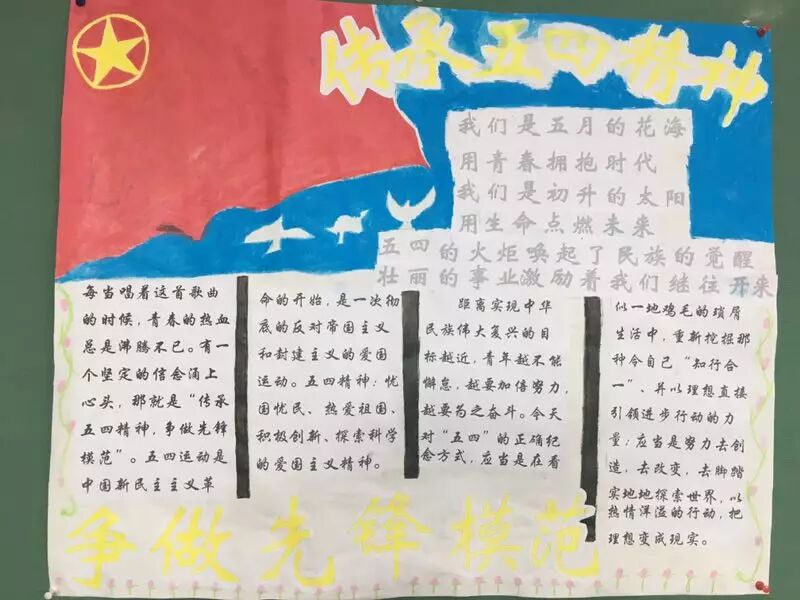 传承五四精神
我们是五月的花海
用青春拥抱时代
我们是初升的太阳
用生命点燃未来
五四的火炬唤起了民族的觉醒
壮丽的事业激励着我们继往开来
每当唱着这首歌曲
的时候，青春的热血
总是沸腾不已。有一
个坚定的信念涌上
心头，那就是“传承
五四精神，争做先锋
模范”。五四运动是
中国新民主主义革
命的开始，是一次彻
底的反对帝国主义
和封建主义的爱国
运动。五四精神：忧
国忧民、热爱祖国、
积极创新、探索科学
的爱国主义精神。
距离实现中华
民族伟大复兴的目
标越近，青年越不能
懈怠，越要加倍努力，
越要为之奋斗。今天
对“五四”的正确纪
念方式，应当是在看
似一地鸡毛的琐屑
生活中，重新挖掘那
种令自己“知行合
一”、并以理想直接
引领进步行动的力
量；应当是努力去创
造，去改变，去脚踏
实地地探索世界，以
热情洋溢的行动，把
理想变成现实。
争做先锋模范